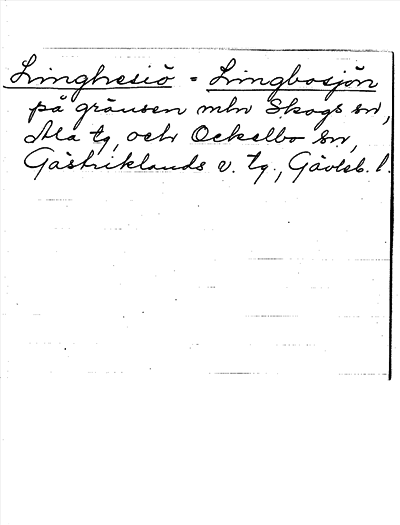 Linghesiö = Lingbosjön
på gränsen mln Skogs sn,
Ala tg, och Ockelbo sn,
Gästriklands v. tg., Gävleb. l.